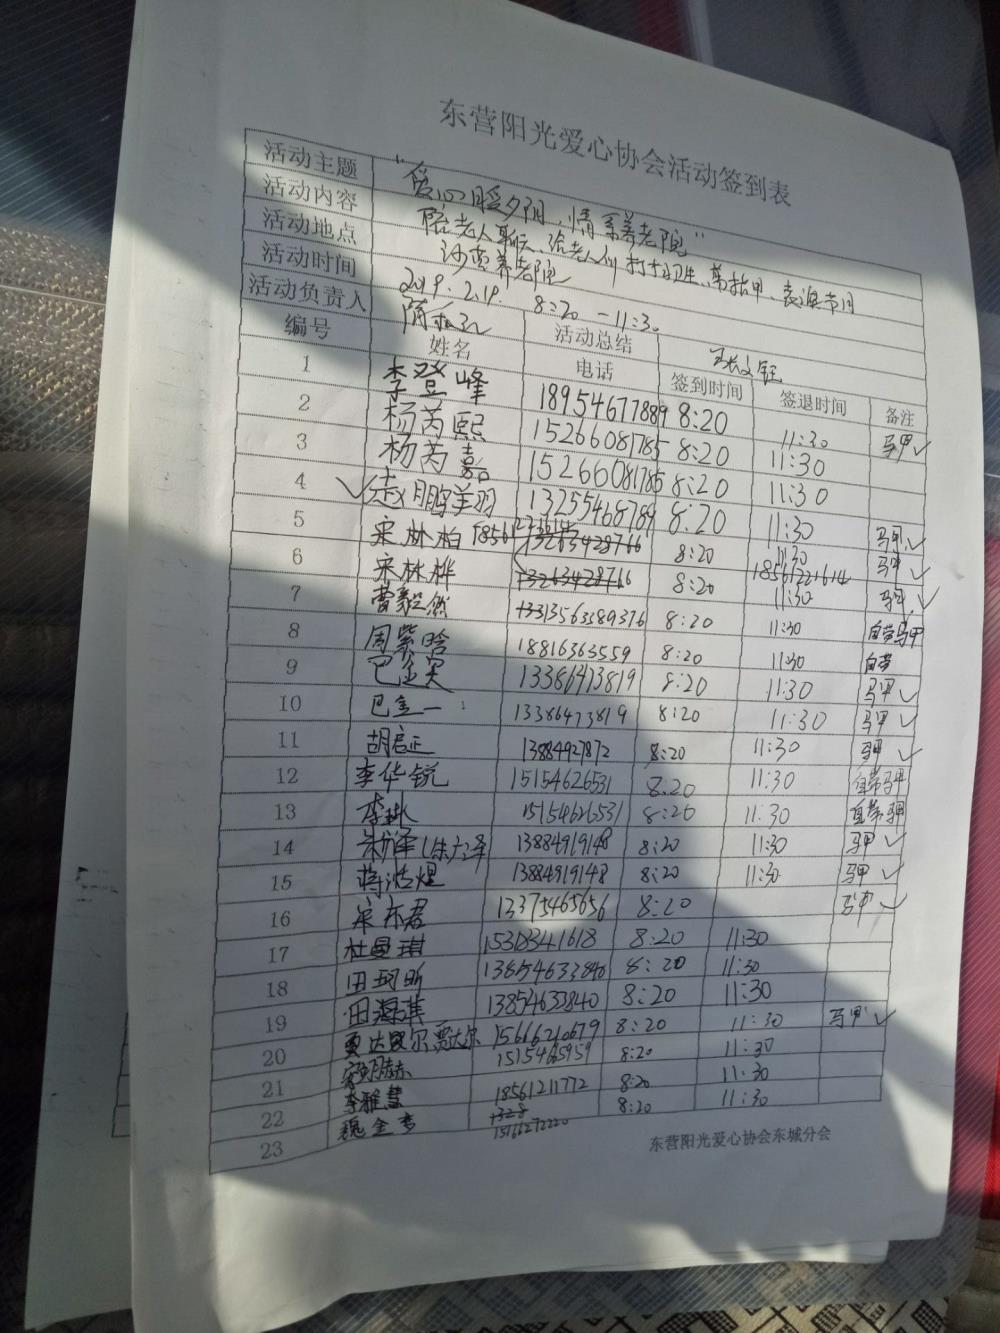 东营阳光爱心协会活动签到表
活动主题 "爱心暖夕阳、情系养老院"
活动内容 陪老人聊天、给老人们打扫卫生、剪指甲、表演节目
活动地点 沙营养老院
活动时间 2019.2.19. 8:20-11:30
活动负责人 活动总结
编号 姓名 电话 签到时间 签退时间 备注
1 李登峰 18954677889 8:20 11:30 马甲✓
2 杨芮熙 15266081785 8:20 11:30
3 杨芮嘉 15266081785 8:20 11:30
4 ✓赵鹏羽 13255468789 8:20 11:30 马甲✓
5 宋林柏 8:20 11:30 马甲✓
6 宋林桦 13263428766 8:20 18561221614 11:30 马甲✓
7 曹毅然 13563389376 8:20 11:30 自带马甲
8 周紫晗 18816363559 8:20 11:30 自带
9 巴金 13386473819 8:20 11:30 马甲✓
10 巴金一 13386473819 8:20 11:30 马甲✓
11 胡启正 13884927872 8:20 11:30 马甲✓
12 李华锐 15154626531 8:20 11:30 自带马甲
13 李琳 15154626531 8:20 11:30 自带马甲
14 13884919148 8:20 11:30 马甲✓
15 蒋浩煜 13884919148 8:20 11:30 马甲✓
16 宋亦君 13375465656 8:20 马甲✓
17 杜曼琪 15383341618 8:20 11:30
18 田珂昕 13854633840 8:20 11:30
19 田 13854633840 8:20 11:30 马甲✓
20 贾达尔 15666210679 8:20 11:30
21 8:20 11:30
22 李雅慧 18561211772 8:20 11:30
23 魏金梦 15166272220 8:20 11:30
东营阳光爱心协会东城分会